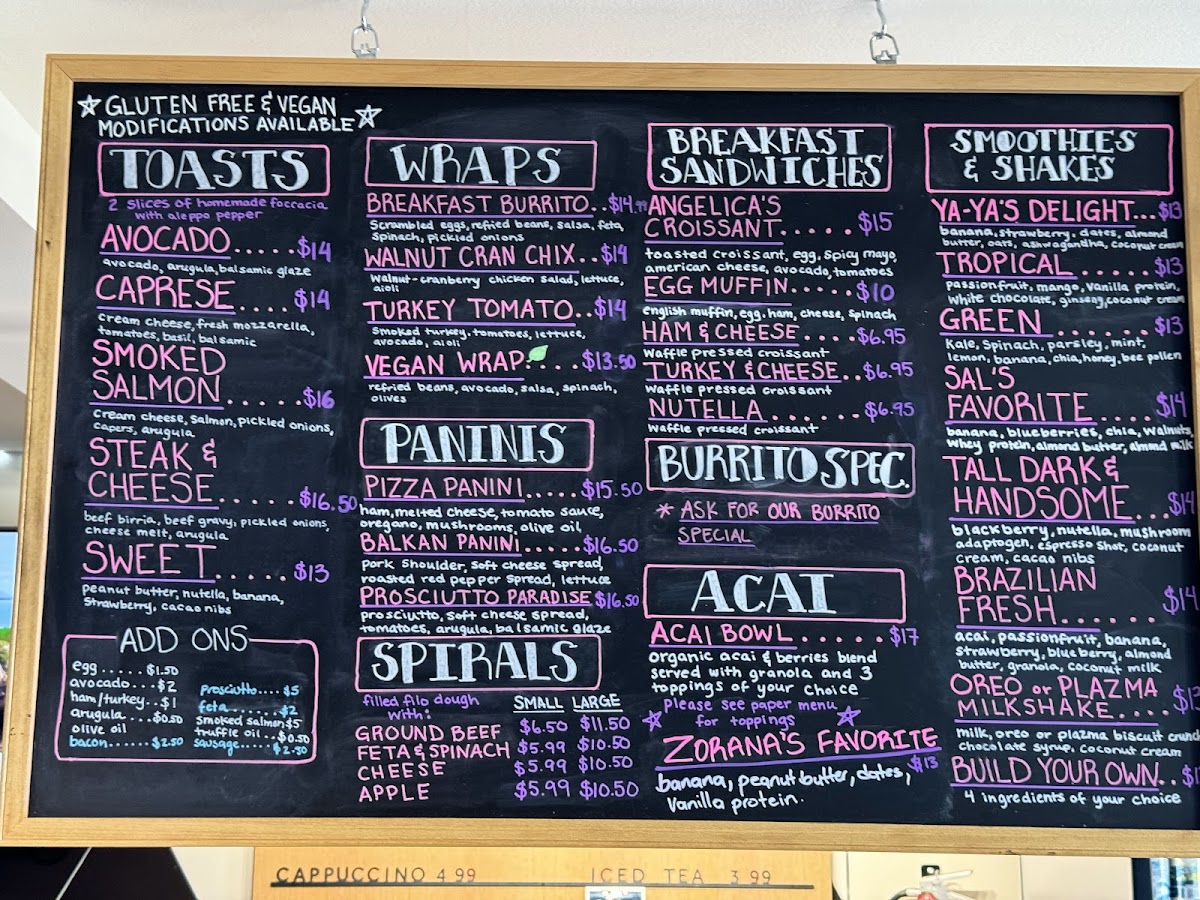 ☆ GLUTEN FREE & VEGAN
MODIFICATIONS AVAILABLE ☆
TOASTS
2 slices of homemade foccacia
with aleppo pepper
AVOCADO.....$14
avocado, arugula, balsamic glaze
CAPRESE....$14
cream cheese, fresh mozzarella,
tomatoes, basil, balsamic
SMOKED
SALMON......$16
cream cheese, salmon, pickled onions,
capers, arugula
STEAK &
CHEESE......$16.50
beef birria, beef gravy, pickled onions,
cheese melt, arugula
SWEET.....$13
peanut butter, nutella, banana,
strawberry, cacao nibs
ADD ONS
egg.....$1.50
avocado...$2
ham/turkey..$1
arugula...$0.50
olive oil
bacon......$2.50
prosciutto....$5
feta........$2
smoked salmon $5
truffle oil..$0.50
sausage.....$2.50
WRAPS
BREAKFAST BURRITO..$14.99
Scrambled eggs, refried beans, salsa, feta,
spinach, pickled onions
WALNUT CRAN CHIX..$14
Walnut-cranberry chicken salad, lettuce,
aioli
TURKEY TOMATO..$14
Smoked turkey, tomatoes, lettuce,
avocado, aioli
VEGAN WRAP....$13.50
refried beans, avocado, salsa, spinach,
olives
PANINIS
PIZZA PANINI.....$15.50
ham, melted cheese, tomato sauce,
oregano, mushrooms, olive oil
BALKAN PANINI.....$16.50
pork shoulder, soft cheese spread,
roasted red pepper spread, lettuce
PROSCIUTTO PARADISE $16.50
prosciutto, soft cheese spread,
tomatoes, arugula, balsamic glaze
SPIRALS
filled filo dough
with:
SMALL LARGE
GROUND BEEF $6.50 $11.50
FETA & SPINACH $5.99 $10.50
CHEESE $5.99 $10.50
APPLE $5.99 $10.50
BREAKFAST
SANDWICHES
ANGELICA'S
CROISSANT.....$15
toasted croissant, egg, spicy mayo,
american cheese, avocado, tomatoes
EGG MUFFIN.....$10
english muffin, egg, ham, cheese, spinach
HAM & CHEESE....$6.95
Waffle pressed croissant
TURKEY & CHEESE..$6.95
Waffle pressed croissant
NUTELLA.......$6.95
Waffle pressed croissant
BURRITO SPEC.
* ASK FOR OUR BURRITO
SPECIAL
ACAI
ACAI BOWL.....$17
organic acai & berries blend
served with granola and 3
toppings of your choice
please see paper menu
☆ for toppings ☆
ZORANA'S FAVORITE
$13
banana, peanut butter, dates,
vanilla protein.
SMOOTHIES
& SHAKES
YA-YA'S DELIGHT...$13
banana, strawberry, dates, almond
butter, oats, ashwagandha, coconut cream
TROPICAL.....$13
passionfruit, mango, vanilla protein,
white chocolate, ginseng, coconut cream
GREEN.....$13
Kale, spinach, parsley, mint,
lemon, banana, chia, honey, bee pollen
SAL'S
FAVORITE....$14
banana, blueberries, chia, walnuts,
whey protein, almond butter, almond milk
TALL DARK &
HANDSOME...$14
blackberry, nutella, mushroom
adaptogen, espresso shot, coconut
cream, cacao nibs
BRAZILIAN
FRESH......$14
acai, passionfruit, banana,
strawberry, blueberry, almond
butter, granola, coconut milk
OREO or PLAZMA
MILKSHAKE....
milk, oreo or plazma biscuit
chocolate syrup, coconut cream
BUILD YOUR OWN..
4 ingredients of your choice
CAPPUCCINO 4 99 ICED TEA 3 99